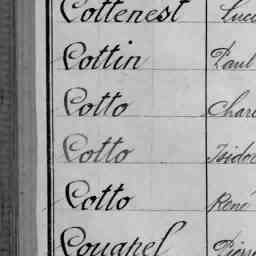 Cottenest Luci
Cottin Paul
Cotto Charl
Cotto Isidor
Cotto René
Couapel Pierr